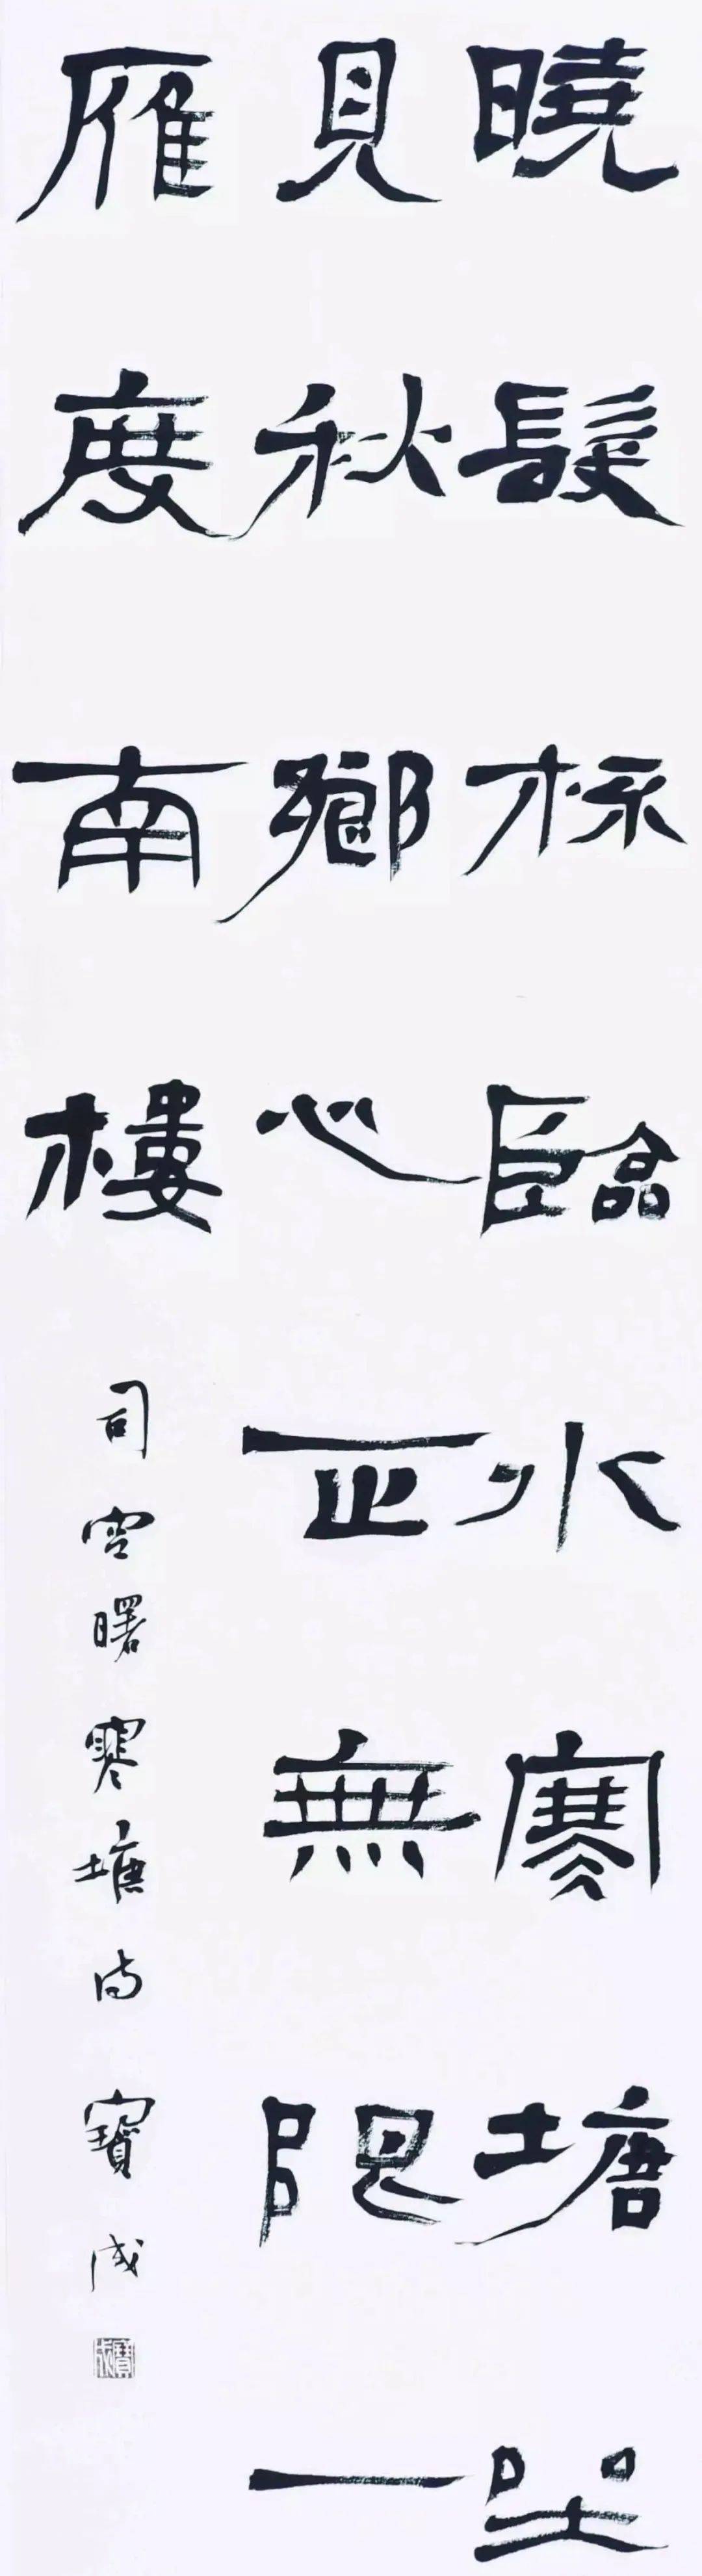 曉髮梳臨水寒塘坐
見秋鄉心正無限一
雁度南樓
司空曙寒塘詩 寶成
寶成